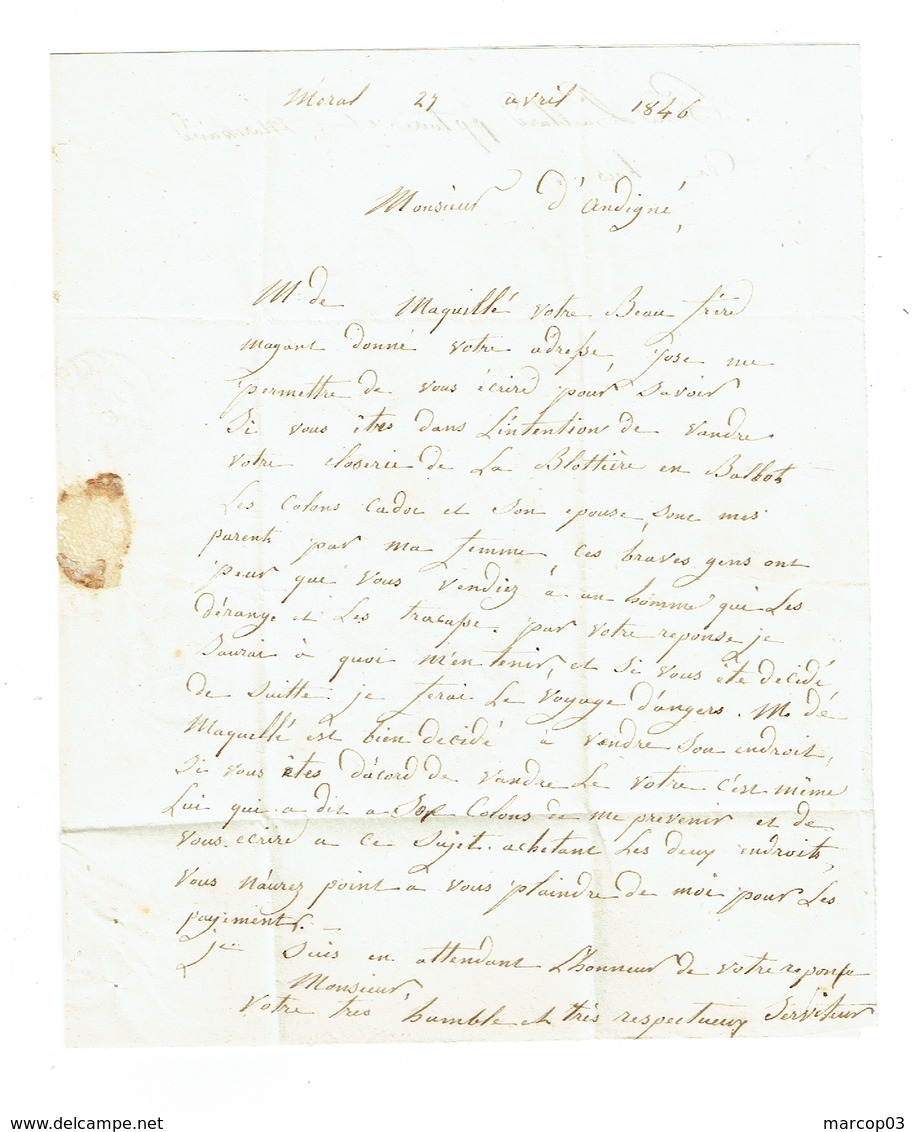 Méral 27 avril 1846
Monsieur d'andigné,
Mr de Maquillé votre Beau frére
mayant donné votre adresse, Jose me
permettre de vous écrire pour Savoir
Si vous êtes dans L'intention de vandre
votre closerie de La Blottière en Ballots
Les Colons Cadoc et Son epouse, Sont mes
parents par ma femme, ces braves gens ont
peur que vous vendiez à un homme qui Les
dérange et Les tracasse. par votre reponse je
Saurai à quoi m'en tenir, et Si vous ête décidé
de Suitte je ferai Le voyage d'angers. M. de
Maquellé est bien decidé à vendre Son endroit,
Si vous êtes dacord de vandre Le votre c'est même
Lui qui a dit a Ses Colons de me prevenir et de
vous ecrire a ce Sujet. achetant Les deux endroits,
vous n'aurez point a vous plaindre de moi pour Les
payements.
je Suis en attendant L'honneur de votre reponse
Monsieur,
votre très humble et très respectueux Serviteur
marcop03